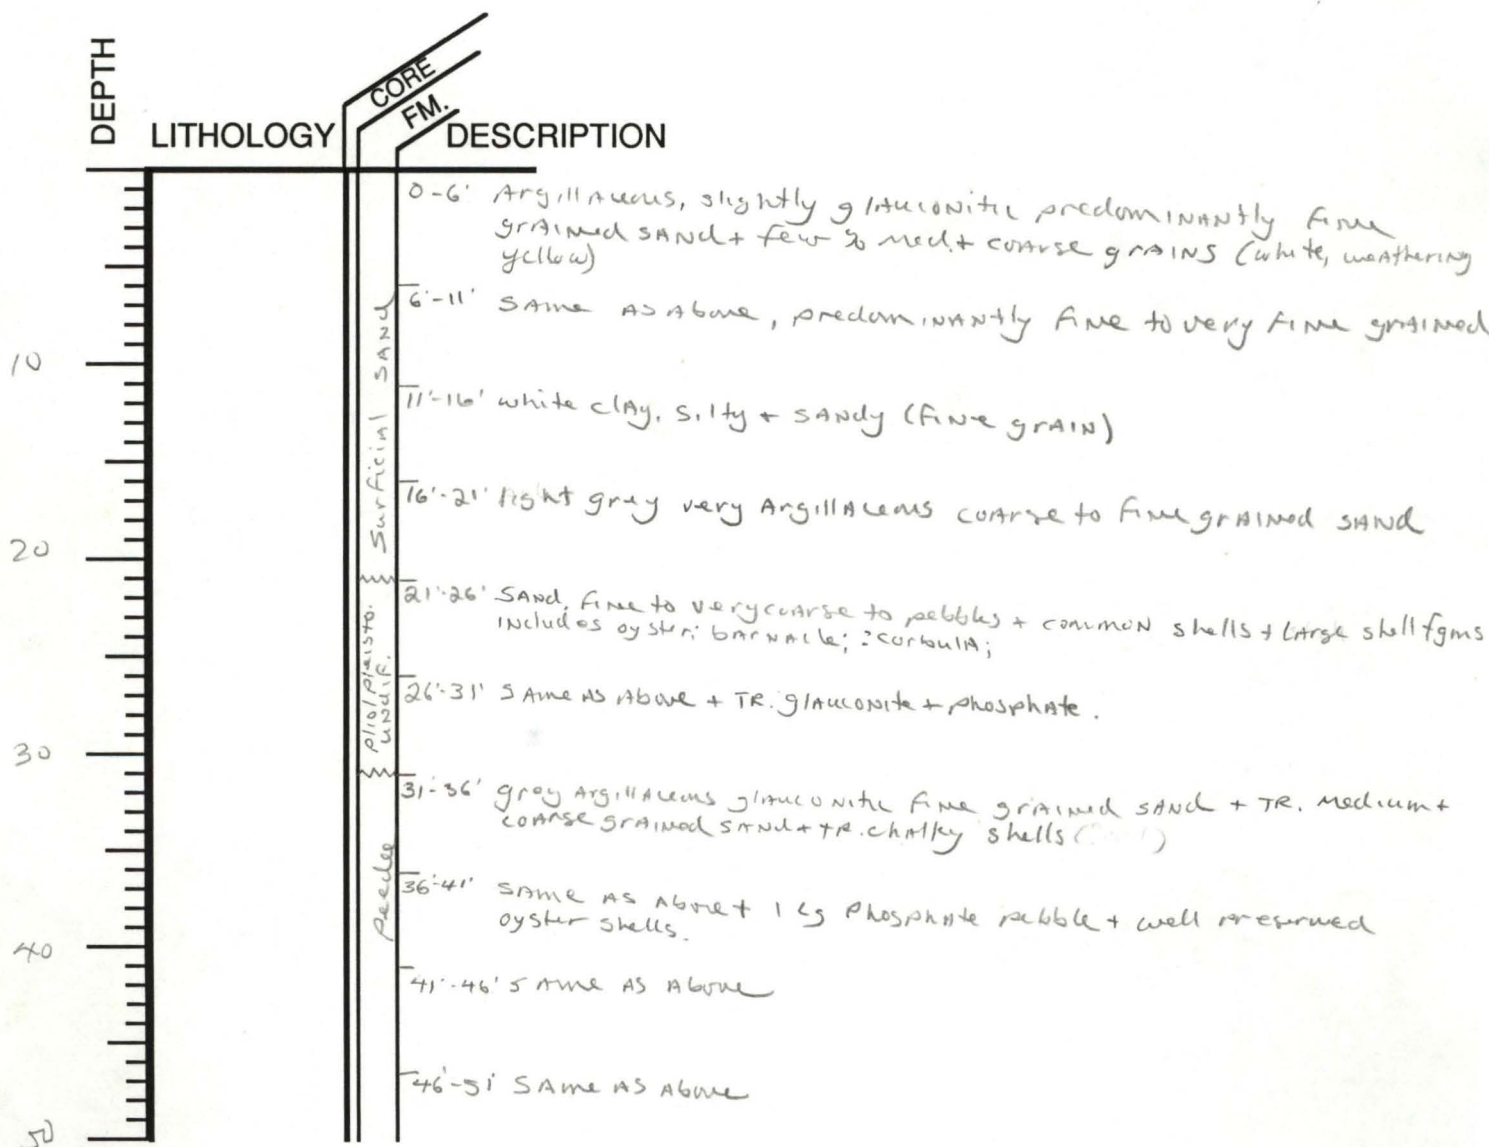 DEPTH
LITHOLOGY
CORE
FM.
DESCRIPTION
0-6' Argillaceous, slightly glauconitic predominantly fine
grained sand + few % med. + coarse grains (white, weathering
yellow)
6'-11' same as above, predominantly fine to very fine grained
10
11'-16' white clay, silty + sandy (fine grain)
Surficial sand
16'-21' light gray very argillaceous coarse to fine grained sand
20
21'-26' sand, fine to very coarse to pebbles + common shells + large shell fgms
includes oyster; barnacle; ?corbula;
plio/pleisto.
undif.
26'-31' same as above + TR. glauconite + phosphate.
30
31-36' gray argillaceous glauconitic fine grained sand + TR. medium +
coarse grained sand + tr. chalky shells
Peedee
36'-41' same as above + 1 lg phosphate pebble + well preserved
oyster shells.
40
41'-46' same as above
46'-51' same as above
50